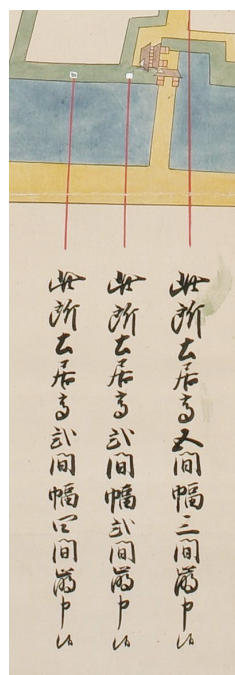 此所土居高五間幅三間崩申候
此所土居高弐間幅弐間崩申候
此所土居高弐間幅四間崩申候